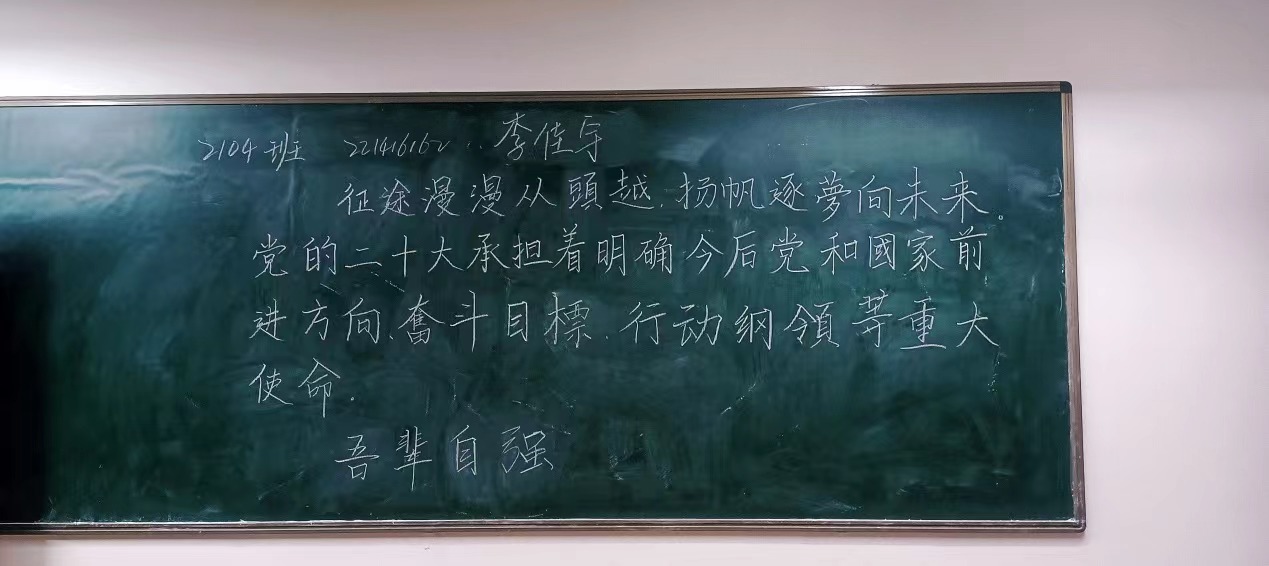 2104班 221416162 李佳宇
征途漫漫从頭越,扬帆逐夢向未来。
党的二十大承担着明确今后党和國家前
进方向、奮斗目標、行动纲領等重大
使命.
吾辈自强